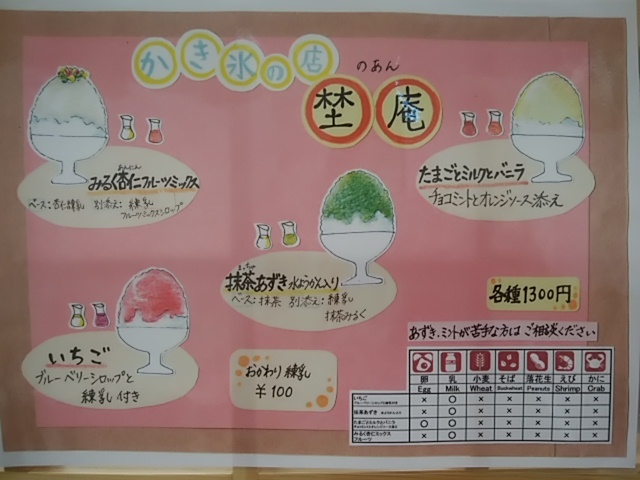 かき氷の店
のあん
埜庵
あんにん
みるく杏仁フルーツミックス
ベース:杏仁練乳 別添え:練乳
フルーツミックスシロップ
たまごとミルクとバニラ
チョコミントとオレンジソース添え
まっちゃ
抹茶あずき 水ようかん入り
ベース:抹茶 別添え:練乳
抹茶みるく
いちご
ブルーベリーシロップと
練乳付き
おかわり練乳
￥100
各種1300円
あずき、ミントが苦手な方は ご相談ください
卵 乳 小麦 そば 落花生 えび かに
Egg Milk Wheat Buckwheat Peanuts Shrimp Crab
いちご
× ○ × × × × ×
抹茶あずき
× ○ × × × × ×
たまごとミルクとバニラ
○ ○ × × × × ×
みるく杏仁ミックス
フルーツ
× ○ × × × × ×